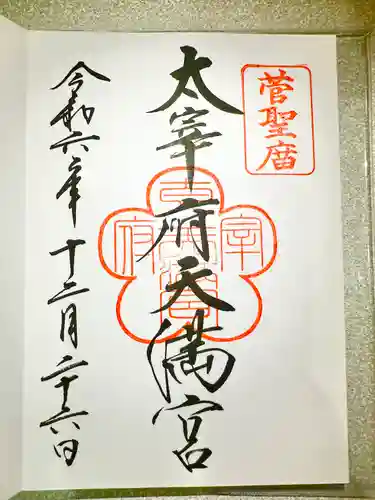 菅聖庿
太宰府天満宮
令和六年十二月二十六日